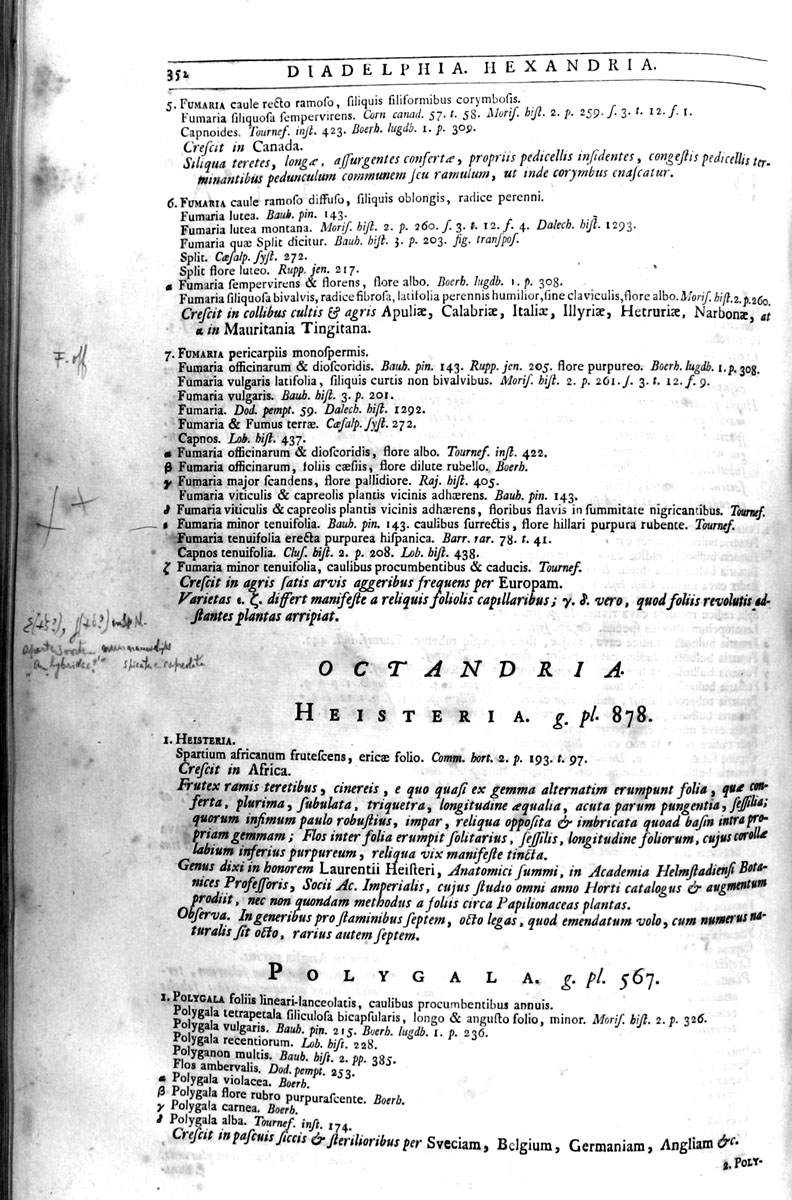 352 DIADELPHIA. HEXANDRIA.
5. FUMARIA caule recto ramoſo, ſiliquis filiformibus corymboſis.
Fumaria ſiliquoſa ſempervirens. Corn canad. 57. t. 58. Moriſ. hiſt. 2. p. 259. ſ. 3. t. 12. f. 1.
Capnoides. Tournef. inſt. 423. Boerh. lugdb. 1. p. 309.
Creſcit in Canada.
Siliqua teretes, longæ, aſſurgentes confertæ, propriis pedicellis inſidentes, congeſtis pedicellis ter-
minantibus pedunculum communem ſeu ramulum, ut inde corymbus enaſcatur.
6. FUMARIA caule ramoſo diffuſo, ſiliquis oblongis, radice perenni.
Fumaria lutea. Bauh. pin. 143.
Fumaria lutea montana. Moriſ. hiſt. 2. p. 260. ſ. 3. t. 12. f. 4. Dalech. hiſt. 1293.
Fumaria quæ Split dicitur. Bauh. hiſt. 3. p. 203. fig. tranſpoſ.
Split. Cæſalp. ſyſt. 272.
Split flore luteo. Rupp. jen. 217.
α Fumaria ſempervirens & florens, flore albo. Boerh. lugdb. 1. p. 308.
Fumaria ſiliquoſa bivalvis, radice fibroſa, latifolia perennis humilior, ſine claviculis, flore albo. Moriſ. hiſt. 2. p. 260.
Creſcit in collibus cultis & agris Apuliæ, Calabriæ, Italiæ, Illyriæ, Hetruriæ, Narbonæ, at
α in Mauritania Tingitana.
7. FUMARIA pericarpiis monoſpermis.
F. off
Fumaria officinarum & dioſcoridis. Bauh. pin. 143. Rupp. jen. 205. flore purpureo. Boerh. lugdb. 1. p. 308.
Fumaria vulgaris latifolia, ſiliquis curtis non bivalvibus. Moriſ. hiſt. 2. p. 261. ſ. 3. t. 12. f. 9.
Fumaria vulgaris. Bauh. hiſt. 3. p. 201.
Fumaria. Dod. pempt. 59. Dalech. hiſt. 1292.
Fumaria & Fumus terræ. Cæſalp. ſyſt. 272.
Capnos. Lob. hiſt. 437.
α Fumaria officinarum & dioſcoridis, flore albo. Tournef. inſt. 422.
β Fumaria officinarum, foliis cæſiis, flore dilute rubello. Boerh.
γ Fumaria major ſcandens, flore pallidiore. Raj. hiſt. 405.
Fumaria viticulis & capreolis plantis vicinis adhærens. Bauh. pin. 143.
δ Fumaria viticulis & capreolis plantis vicinis adhærens, floribus flavis in ſummitate nigricantibus. Tournef.
ε Fumaria minor tenuifolia. Bauh. pin. 143. caulibus ſurrectis, flore hillari purpura rubente. Tournef.
Fumaria tenuifolia erecta purpurea hiſpanica. Barr. rar. 78. t. 41.
Capnos tenuifolia. Cluſ. hiſt. 2. p. 208. Lob. hiſt. 438.
ζ Fumaria minor tenuifolia, caulibus procumbentibus & caducis. Tournef.
Creſcit in agris ſatis arvis aggeribus frequens per Europam.
Varietas ε. ζ. differt manifeſte a reliquis foliolis capillaribus; γ. δ. vero, quod foliis revolutis ad-
ſtantes plantas arripiat.
OCTANDRIA.
HEISTERIA. g. pl. 878.
1. HEISTERIA.
Spartium africanum fruteſcens, ericæ folio. Comm. hort. 2. p. 193. t. 97.
Creſcit in Africa.
Frutex ramis teretibus, cinereis, e quo quaſi ex gemma alternatim erumpunt folia, quæ con-
ferta, plurima, ſubulata, triquetra, longitudine æqualia, acuta parum pungentia, ſeſſilia;
quorum infimum paulo robuſtius, impar, reliqua oppoſita & imbricata quoad baſin intra pro-
priam gemmam; Flos inter folia erumpit ſolitarius, ſeſſilis, longitudine foliorum, cujus corollæ
labium inferius purpureum, reliqua vix manifeſte tincta.
Genus dixi in honorem Laurentii Heiſteri, Anatomici ſummi, in Academia Helmſtadienſi Bota-
nices Profeſſoris, Socii Ac. Imperialis, cujus ſtudio omni anno Horti catalogus & augmentum
prodiit, nec non quondam methodus a foliis circa Papilionaceas plantas.
Obſerva. In generibus pro ſtaminibus ſeptem, octo legas, quod emendatum volo, cum numerus na-
turalis ſit octo, rarius autem ſeptem.
POLYGALA. g. pl. 567.
1. POLYGALA foliis lineari-lanceolatis, caulibus procumbentibus annuis.
Polygala tetrapetala ſiliculoſa bicapſularis, longo & anguſto folio, minor. Moriſ. hiſt. 2. p. 326.
Polygala vulgaris. Bauh. pin. 215. Boerh. lugdb. 1. p. 236.
Polygala recentiorum. Lob. hiſt. 228.
Polyganon multis. Bauh. hiſt. 2. pp. 385.
Flos ambervalis. Dod. pempt. 253.
α Polygala violacea. Boerh.
β Polygala flore rubro purpuraſcente. Boerh.
γ Polygala carnea. Boerh.
δ Polygala alba. Tournef. inſt. 174.
Creſcit in paſcuis ſiccis & ſterilioribus per Sveciam, Belgium, Germaniam, Angliam &c.
2. POLY-